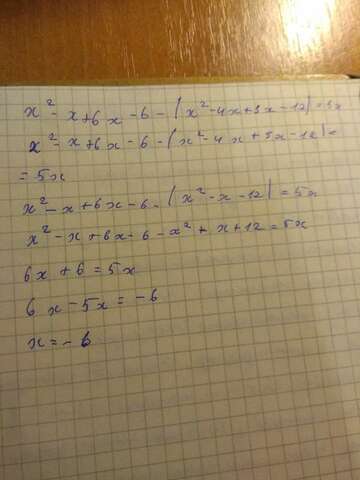 x² - x + 6x - 6 - (x² - 4x + 3x - 12) = 5x
x² - x + 6x - 6 - (x² - 4x + 3x - 12) =
= 5x
x² - x + 6x - 6 - (x² - x - 12) = 5x
x² - x + 6x - 6 - x² + x + 12 = 5x
6x + 6 = 5x
6x - 5x = -6
x = -6